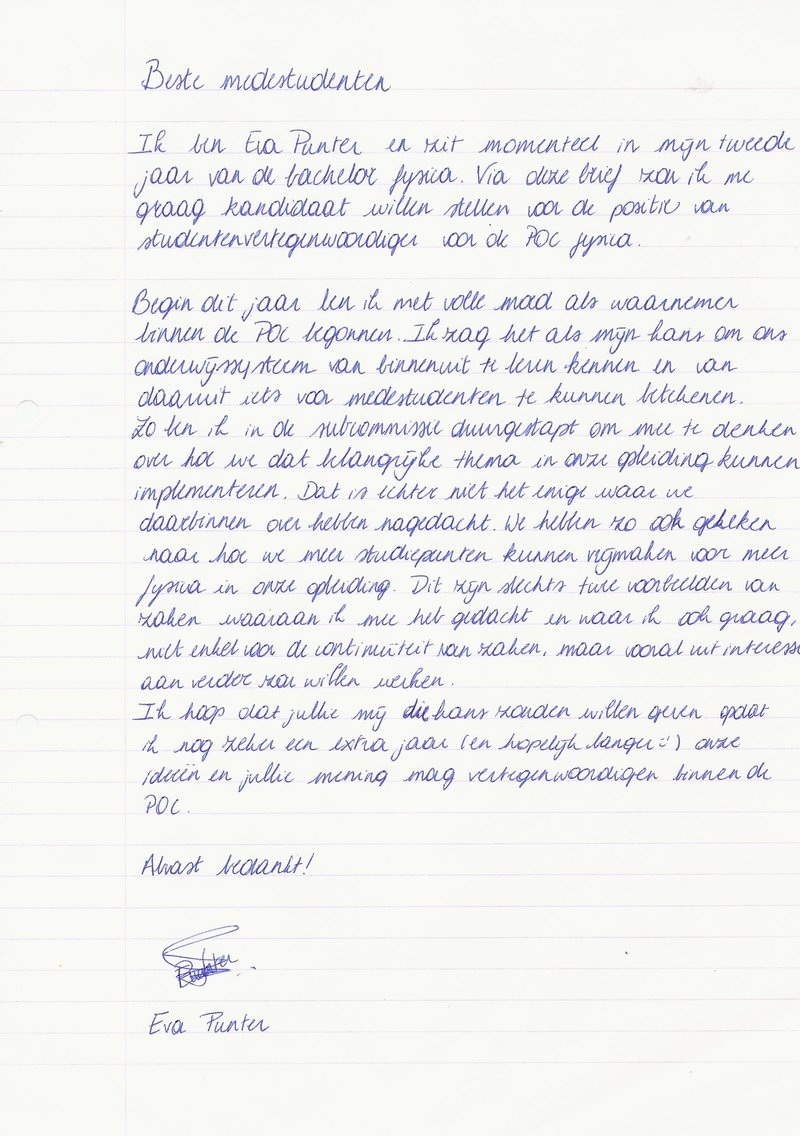 Beste medestudenten
Ik ben Eva Punter en zit momenteel in mijn tweede
jaar van de bachelor fysica. Via deze brief zou ik me
graag kandidaat willen stellen voor de positie van
studentenvertegenwoordiger voor de POC fysica.
Begin dit jaar ben ik met volle moed als waarnemer
binnen de POC begonnen. Ik zag het als mijn kans om ons
onderwijssysteem van binnenuit te leren kennen en van
daaruit iets voor medestudenten te kunnen betekenen.
Zo ben ik in de subcommissie duurgestapt om mee te denken
over hoe we dat belangrijke thema in onze opleiding kunnen
implementeren. Dat is echter niet het enige waar we
daarbinnen over hebben nagedacht. We hebben zo ook gekeken
naar hoe we meer studiepunten kunnen vrijmaken voor meer
fysica in onze opleiding. Dit zijn slechts twee voorbeelden van
zaken waaraan ik mee heb gedacht en waar ik ook graag,
niet enkel voor de continuïteit van zaken, maar vooral uit interesse
aan verder zou willen werken.
Ik hoop dat jullie mij die kans zouden willen geven opdat
ik nog zeker een extra jaar (en hopelijk langer :)) onze
ideeën en jullie mening mag vertegenwoordigen binnen de
POC.
Alvast bedankt!
Punter
Eva Punter